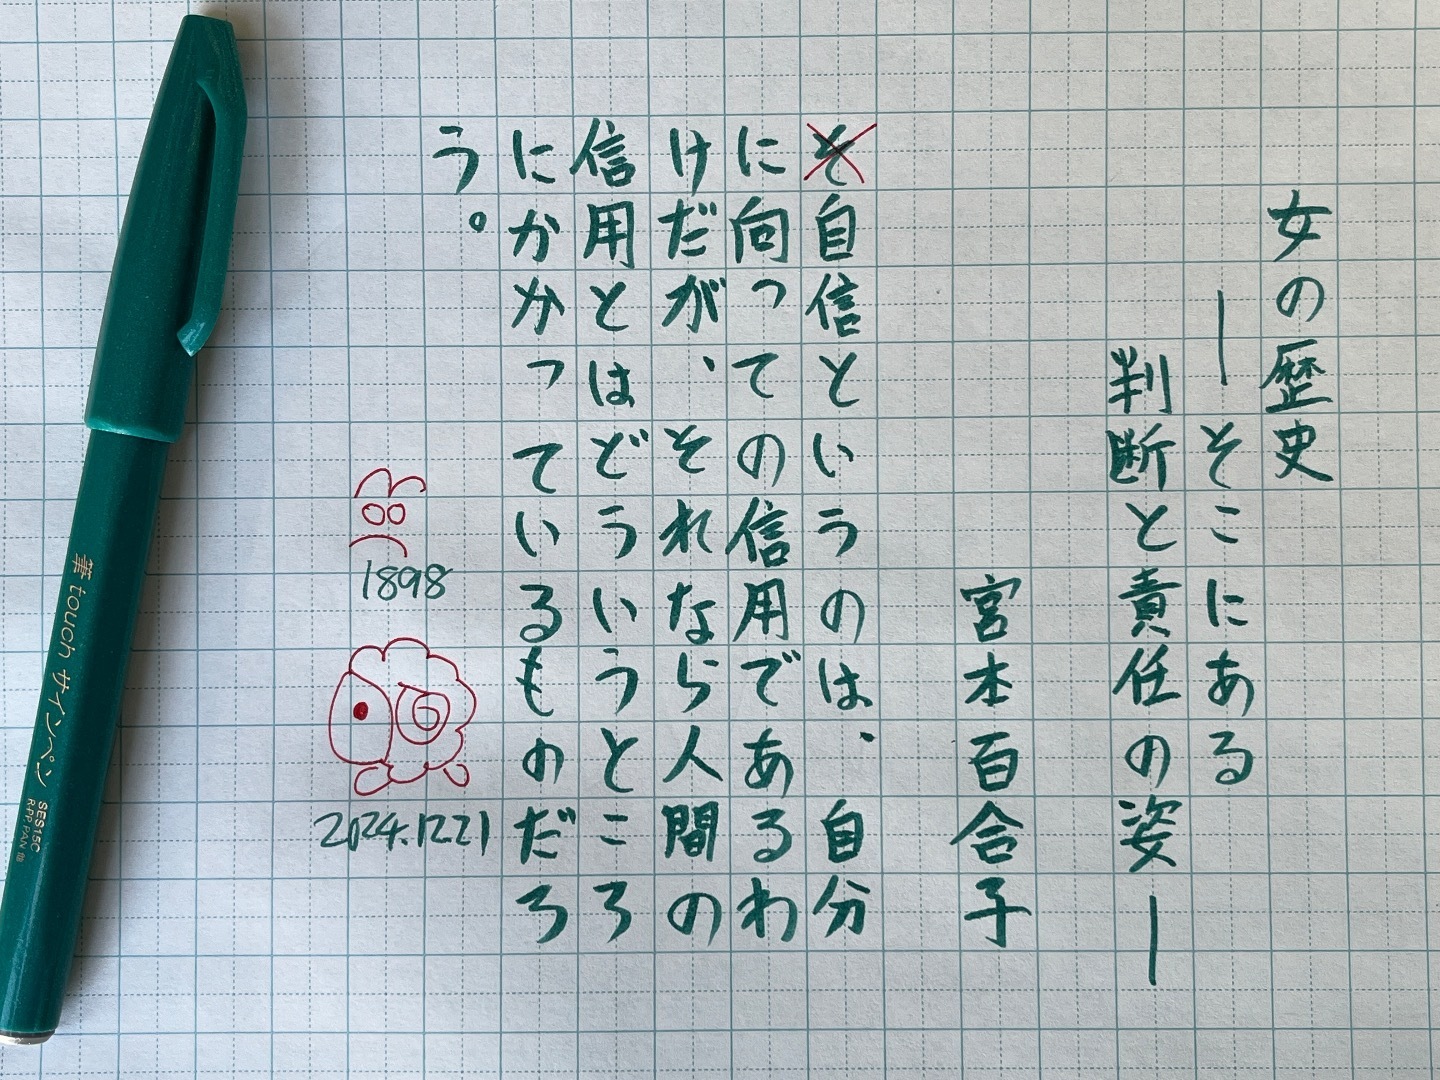 女の歴史
―そこにある
判断と責任の姿―
宮本百合子
そ自信というのは、自分
に向っての信用であるわ
けだが、それなら人間の
信用とはどういうところ
にかかっているものだろ
う。
1898
2024.1221
筆touch サインペン SES15C